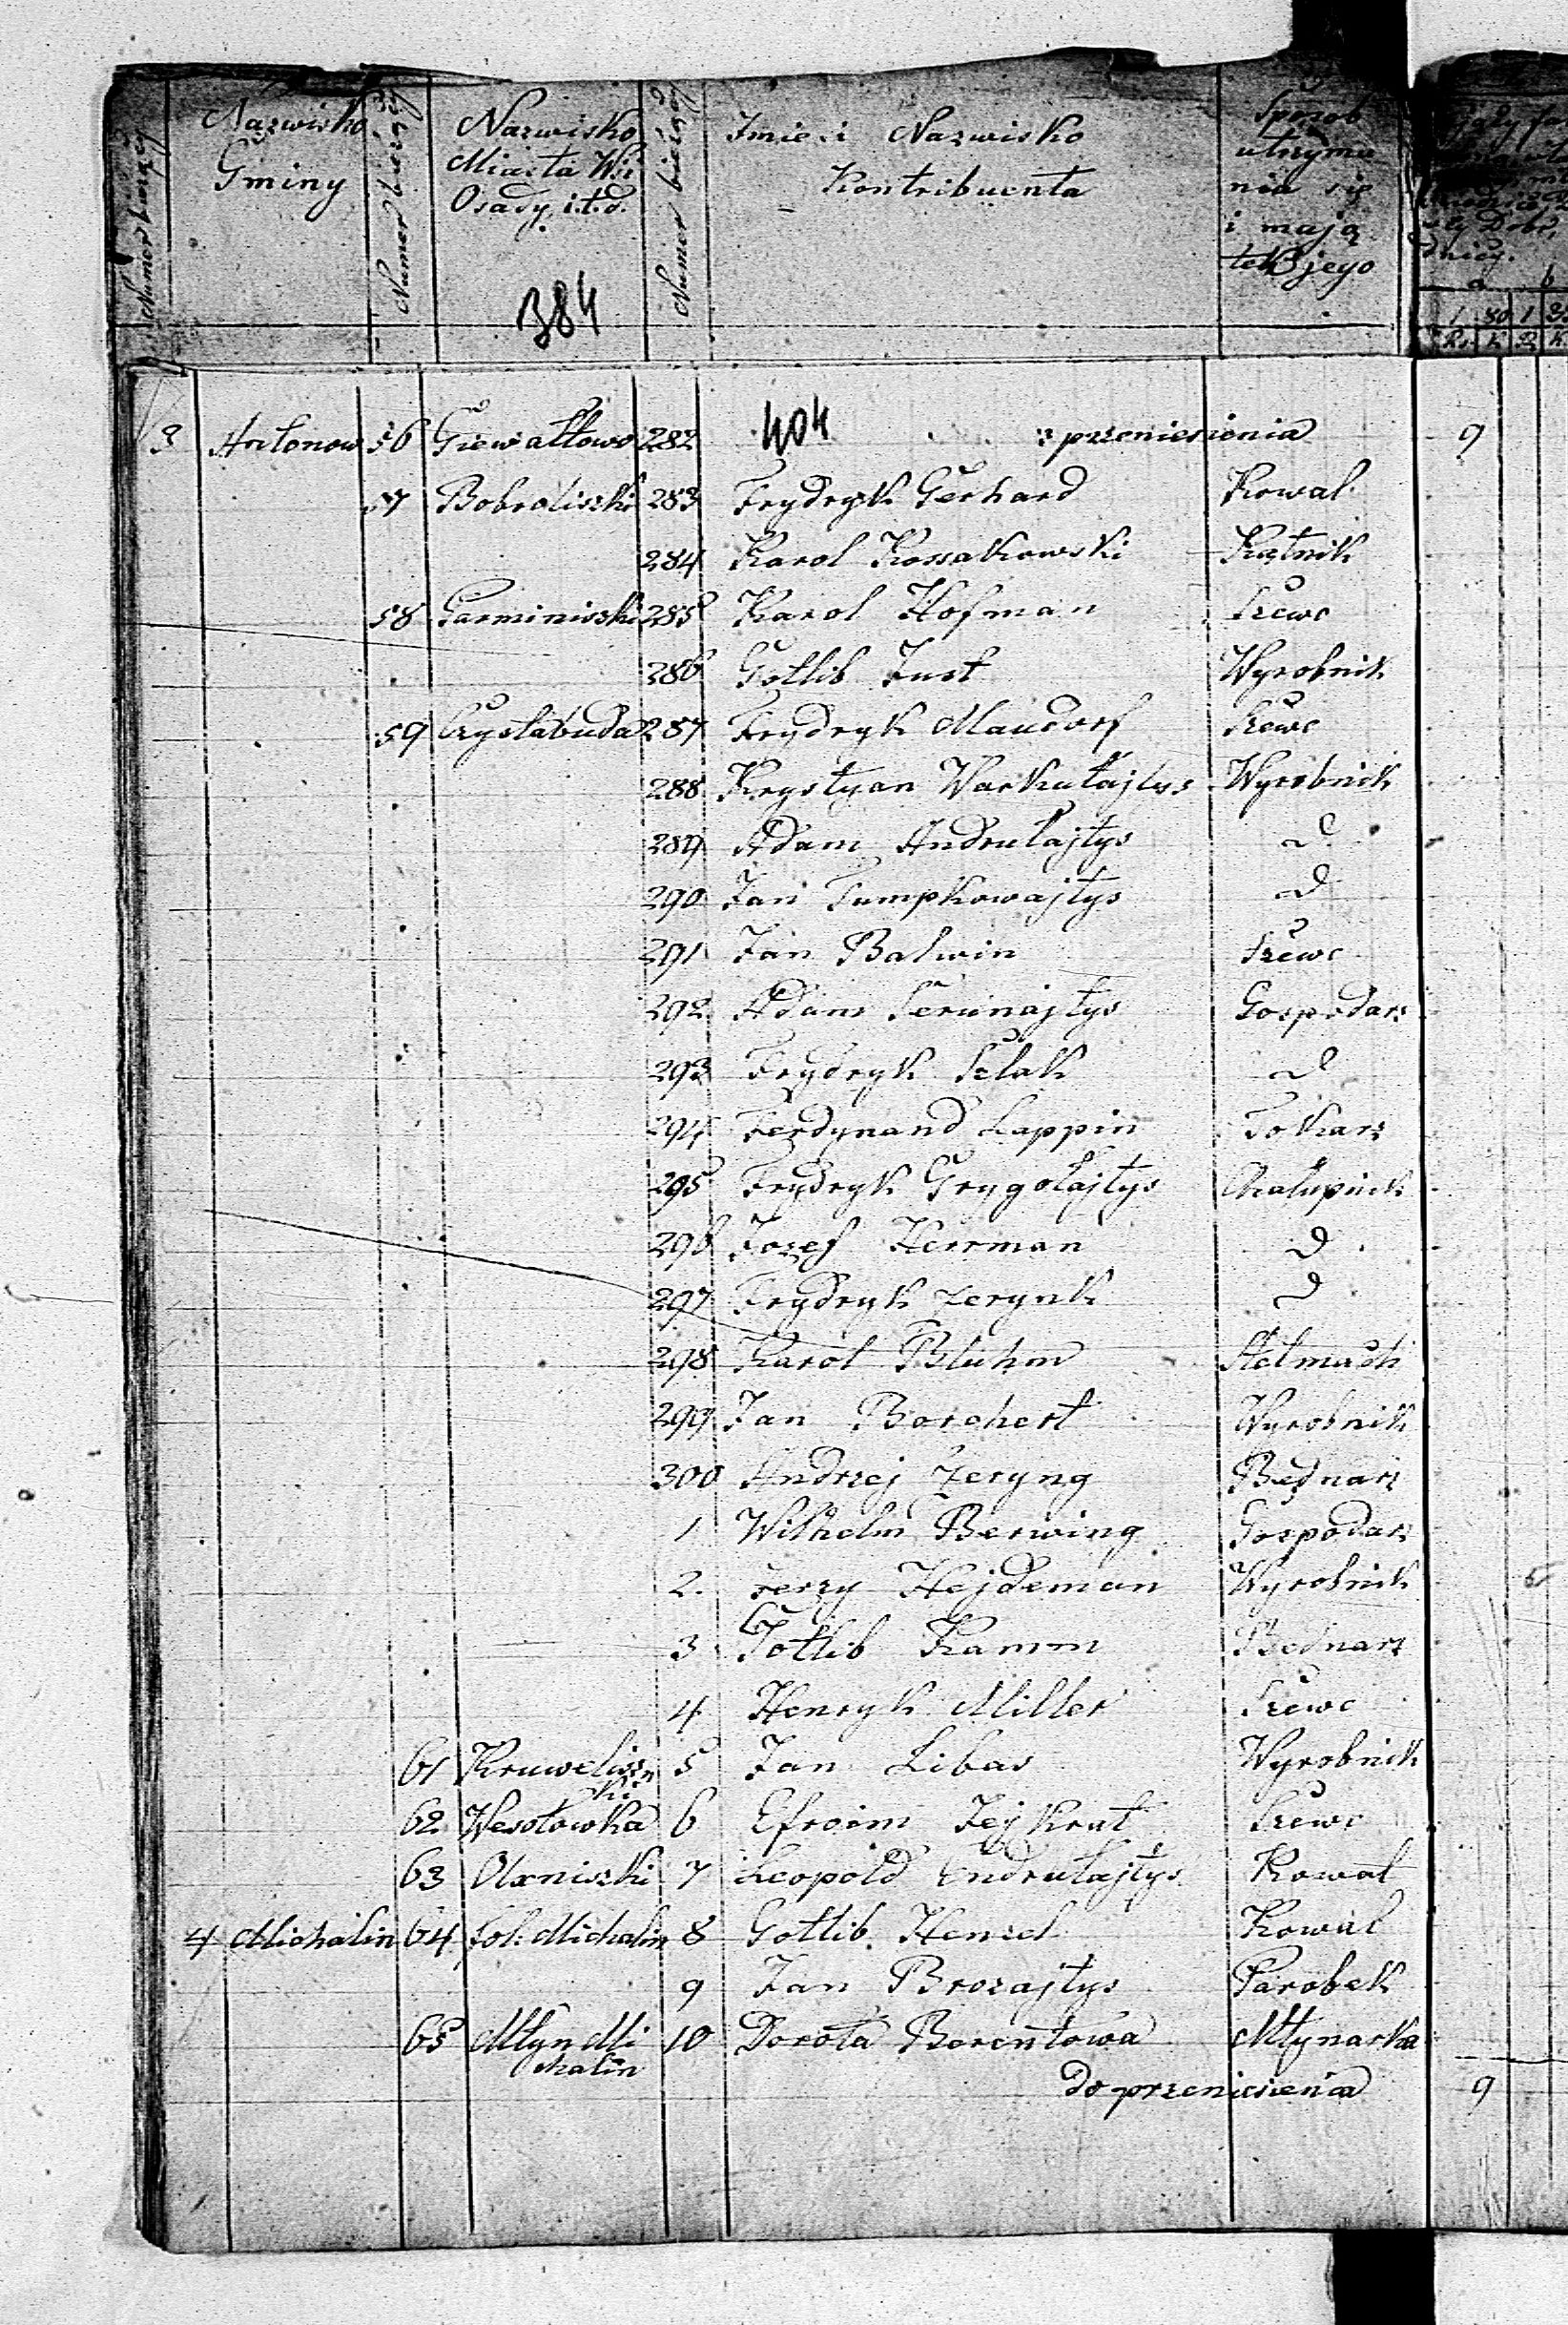 Numer bieżący
Nazwisko Gminy
Numer bieżący
Nazwisko Miasta Wsi Osady i.t.d.
Numer bieżący
Imie i Nazwisko Kontribuenta
Sposób utrzymania się i majątek jego
384
a b
1 50 1
Rs K R K
3 Antonow 56 Giewałtowo 282 404 z przeniesienia 9
57 Bobroliszki 283 Frydryk Gerhard Kowal
284 Karol Kossakowski Kątnik
58 Garminiszki 285 Karol Hofman Szewc
286 Gotlib Just Wyrobnik
59 Grystabuda 287 Frydryk Maudorf Szewc
288 Krystyan Warkułajtys Wyrobnik
289 Adam Andrułajtys d
290 Jan Tumpkowajtys d
291 Jan Balwin Szewc
292 Adam Serunajtys Gospodarz
293 Frydryk Szlak d
294 Ferdynand Lappin Tokarz
295 Frydryk Grygołajtys Chałupnik
296 Jozef Herrman d
297 Frydryk Zerynk d
298 Karol Bluhm Stelmach
299 Jan Borchert Wyrobnik
300 Andrzej Zeryng Bednarz
1 Wilhelm Berwing Gospodarz
2. Jerzy Hejdeman Wyrobnik
3 Gotlib Kamm Bednarz
4 Henryk Miller Szewc
61 Kruweliszki 5 Jan Libas Wyrobnik
62 Wesołowka 6 Efroim Zejkrat Szewc
63 Olxniszki 7 Leopold Endrułajtys Kowal
4 Michalin 64 fol. Michalin 8 Gotlib Henzel Kowal
9 Jan Brozajtys Parobek
65 Młyn Mi 10 Dorota Borentowa Młynarka
chalin
do przeniesienia 9